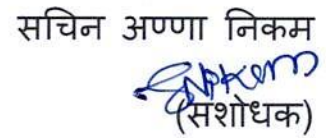 सचिन अण्णा निकम
(संशोधक)